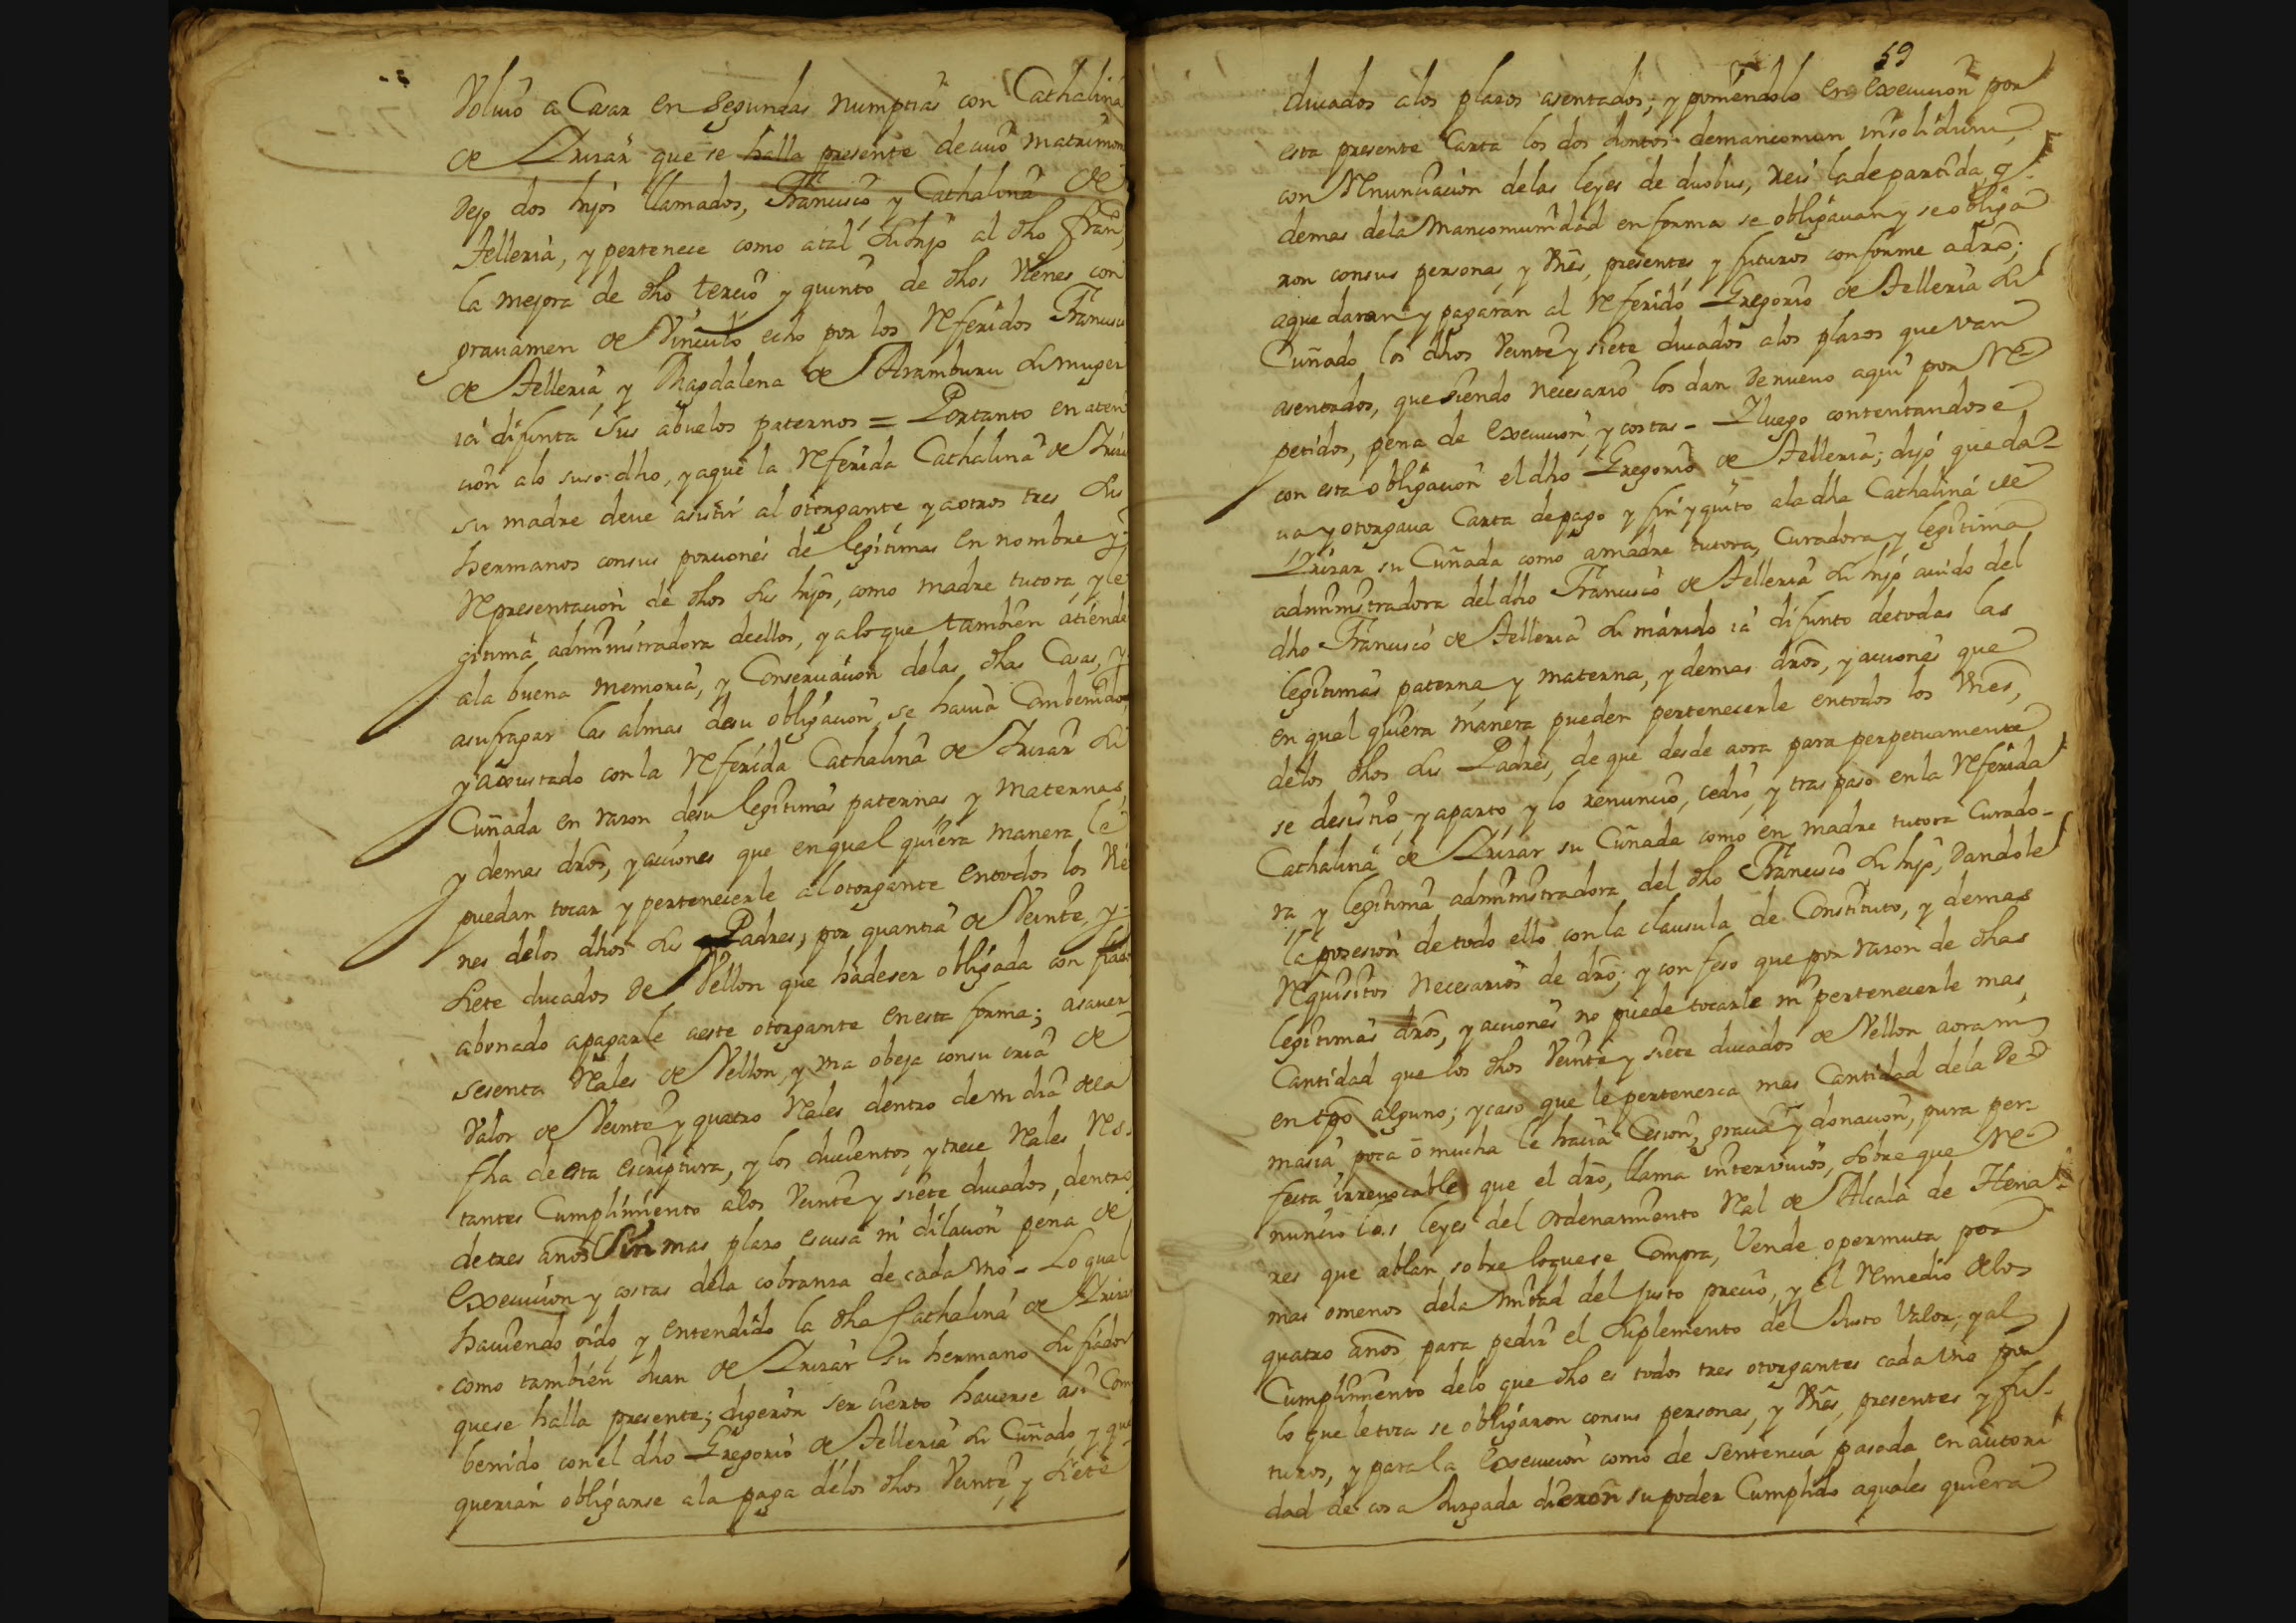 Volvio a Casar en segundas numptias con Cathalina
de Yrizar que se halla presente de cuio matrimon
Dejo dos hijos llamados, Franco y Cathalina de
Telleria, y pertenece como a tal su hijo al dho Fran,
la mejora de dho tercio y quinto de dhos Vienes con
gravamen de Vinculo echo por los Referidos Francisc
de Telleria, y Magdalena de Aramburu su muger
ia difunta sus abuelos paternos = Portanto en aten
cion alo suso dho, y aque la Referida Cathalina de Yriza
su madre deue asistir al otorgante y aotros tres sus
hermanos consus porciones de legitimas en nombre y
Representacion de dhos sus hijos, como madre tutora, y le
gitima administradora deellos, y aloque tambien atiende
ala buena memoria, y Conseruacion delas dhas Casas, y
asufragar las almas desu obligacion, se hauia Combenido
y axustado con la Referida Cathalina de Yrizar su
Cuñada en razon desu legitimas paternas y maternas
y demas dros, y acciones que enqual quiera manera le
puedan tocar y pertenecerle al otorgante entodos los Vie
nes delos dhos sus Padres, por quantia de Veinte, y
siete ducados de Vellon que hadeser obligada con fiador
abonado apagarle aeste otorgante enesta forma; asauer
sesenta Rales de Vellon, y una obeja consu cria de
Valor de Veinte y quatro Rales dentro de un dia dela
fha de esta escriptura, y los ducientos, y trece Rales Res-
tantes Cumplimiento alos Veinte y siete ducados, dentro
detres años Sin mas plazo escusa ni dilacion pena de
execucion y costas dela cobranza de cada uno - Lo qual
hauiendo oido y entendido la dha Cathalina de Yrizar
como tambien Juan de Yrizar su hermano su fiador
quese halla presente; digeron ser cierto hauerse asi Com
benido con el dho Gregorio de Telleria su Cuñado y que
querian obligarse ala paga delos dhos Veinte, y siete
59
ducados alos plazos asentados; y poniendolo en execucion por
esta presente Carta los dos Juntos demancomun insolidum
con Renunciacion delas leyes de duobus, Reis ladepartida, y
demas dela Mancomunidad en forma se obligauan y se obliga
ron consus personas, y Vnes, presentes y futuros conforme adro;
aque daran y pagaran al Referido Gregorio de Telleria su
Cuñado los dhos Veinte y siete ducados alos plazos que van
asentados, que siendo necesario los dan denueuo aqui por Re-
petidos, pena de execucion, y costas - Y luego contentandose
con esta obligacion el dho Gregorio de Telleria; dijo que da-
ua y otorgaua Carta depago y fin y quito ala dha Cathalina de
Yrizar su Cuñada como amadre tutora, Curadora y legitima
administradora del dho Francisco de Telleria su hijo auido del
dho Francisco de Telleria su marido ia difunto detodas las
legitimas paterna y materna, y demas dros, y acciones que
en qual quiera manera pueden pertenecerle entodos los Vnes,
delos dhos sus Padres, de que desde aora para perpetuamente
se desistio, y aparto y lo renuncio, cedio, y traspaso en la Referida
Cathalina de Yrizar su Cuñada como en madre tutora Curado-
ra y legitima administradora del dho Francisco su hijo, Dandole
la posesion de todo ello con la clausula de Constituto, y demas
Requisitos necesarios de dro; y confeso que por razon de dhas
legitimas dros, y acciones no puede tocarle ni pertenecerle mas
Cantidad que los dhos Veinte y siete ducados de Vellon aora ni
en tpo alguno; y caso que le pertenezca mas Cantidad dela De-
masia poca o mucha le hacia Cesion, gracia y donacion, pura per-
fecta irreuocable que el dro, llama intervivos, sobre que Re-
nuncio las leyes del ordenamiento Ral de Alcala de Hena-
res que ablan sobre loquese Compra, Vende, o permuta por
mas omenos dela mitad del justo precio, y el Remedio delos
quatro años para pedir el Suplemento del Justo Valor; y al
Cumplimiento delo que dho es todos tres otorgantes cada uno por
lo que letoca se obligaron consus personas, y Vnes, presentes y fu-
turos, y para la execucion como de sentencia pasada en autori
dad de cosa Juzgada dieron su poder Cumplido aquales quiera